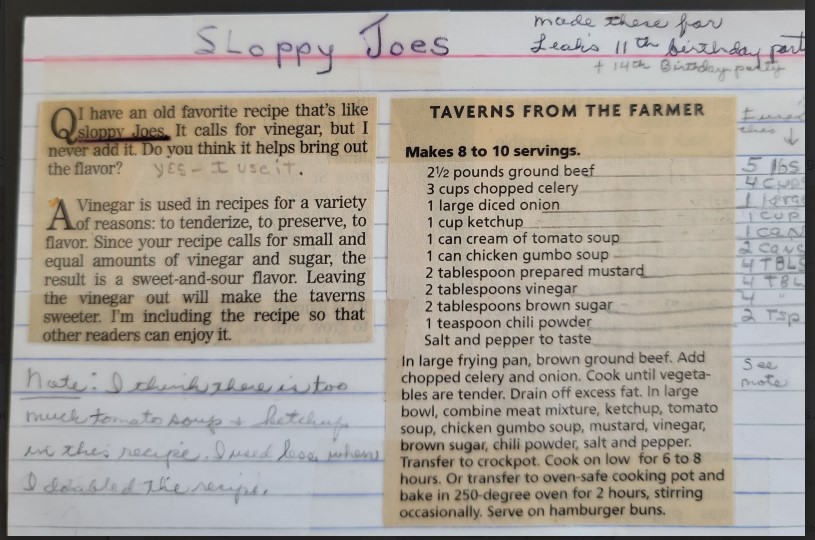 Sloppy Joes
made these for
Leah's 11th birthday part
+ 14th Birthday party
Q I have an old favorite recipe that's like
sloppy Joes. It calls for vinegar, but I
never add it. Do you think it helps bring out
the flavor? YES - I use it.
A Vinegar is used in recipes for a variety
of reasons: to tenderize, to preserve, to
flavor. Since your recipe calls for small and
equal amounts of vinegar and sugar, the
result is a sweet-and-sour flavor. Leaving
the vinegar out will make the taverns
sweeter. I'm including the recipe so that
other readers can enjoy it.
Note: I think there is too
much tomato soup + ketchup
in this recipe. I used less when
I doubled the recipe.
TAVERNS FROM THE FARMER
Makes 8 to 10 servings.
2½ pounds ground beef
3 cups chopped celery
1 large diced onion
1 cup ketchup
1 can cream of tomato soup
1 can chicken gumbo soup
2 tablespoon prepared mustard
2 tablespoons vinegar
2 tablespoons brown sugar
1 teaspoon chili powder
Salt and pepper to taste
In large frying pan, brown ground beef. Add
chopped celery and onion. Cook until vegeta-
bles are tender. Drain off excess fat. In large
bowl, combine meat mixture, ketchup, tomato
soup, chicken gumbo soup, mustard, vinegar,
brown sugar, chili powder, salt and pepper.
Transfer to crockpot. Cook on low for 6 to 8
hours. Or transfer to oven-safe cooking pot and
bake in 250-degree oven for 2 hours, stirring
occasionally. Serve on hamburger buns.
I used
this ↓
5 lbs
4 cups
1 large
1 cup
1 can
2 cans
4 TBLS
4 TBL
4 "
2 Tsp
See
note